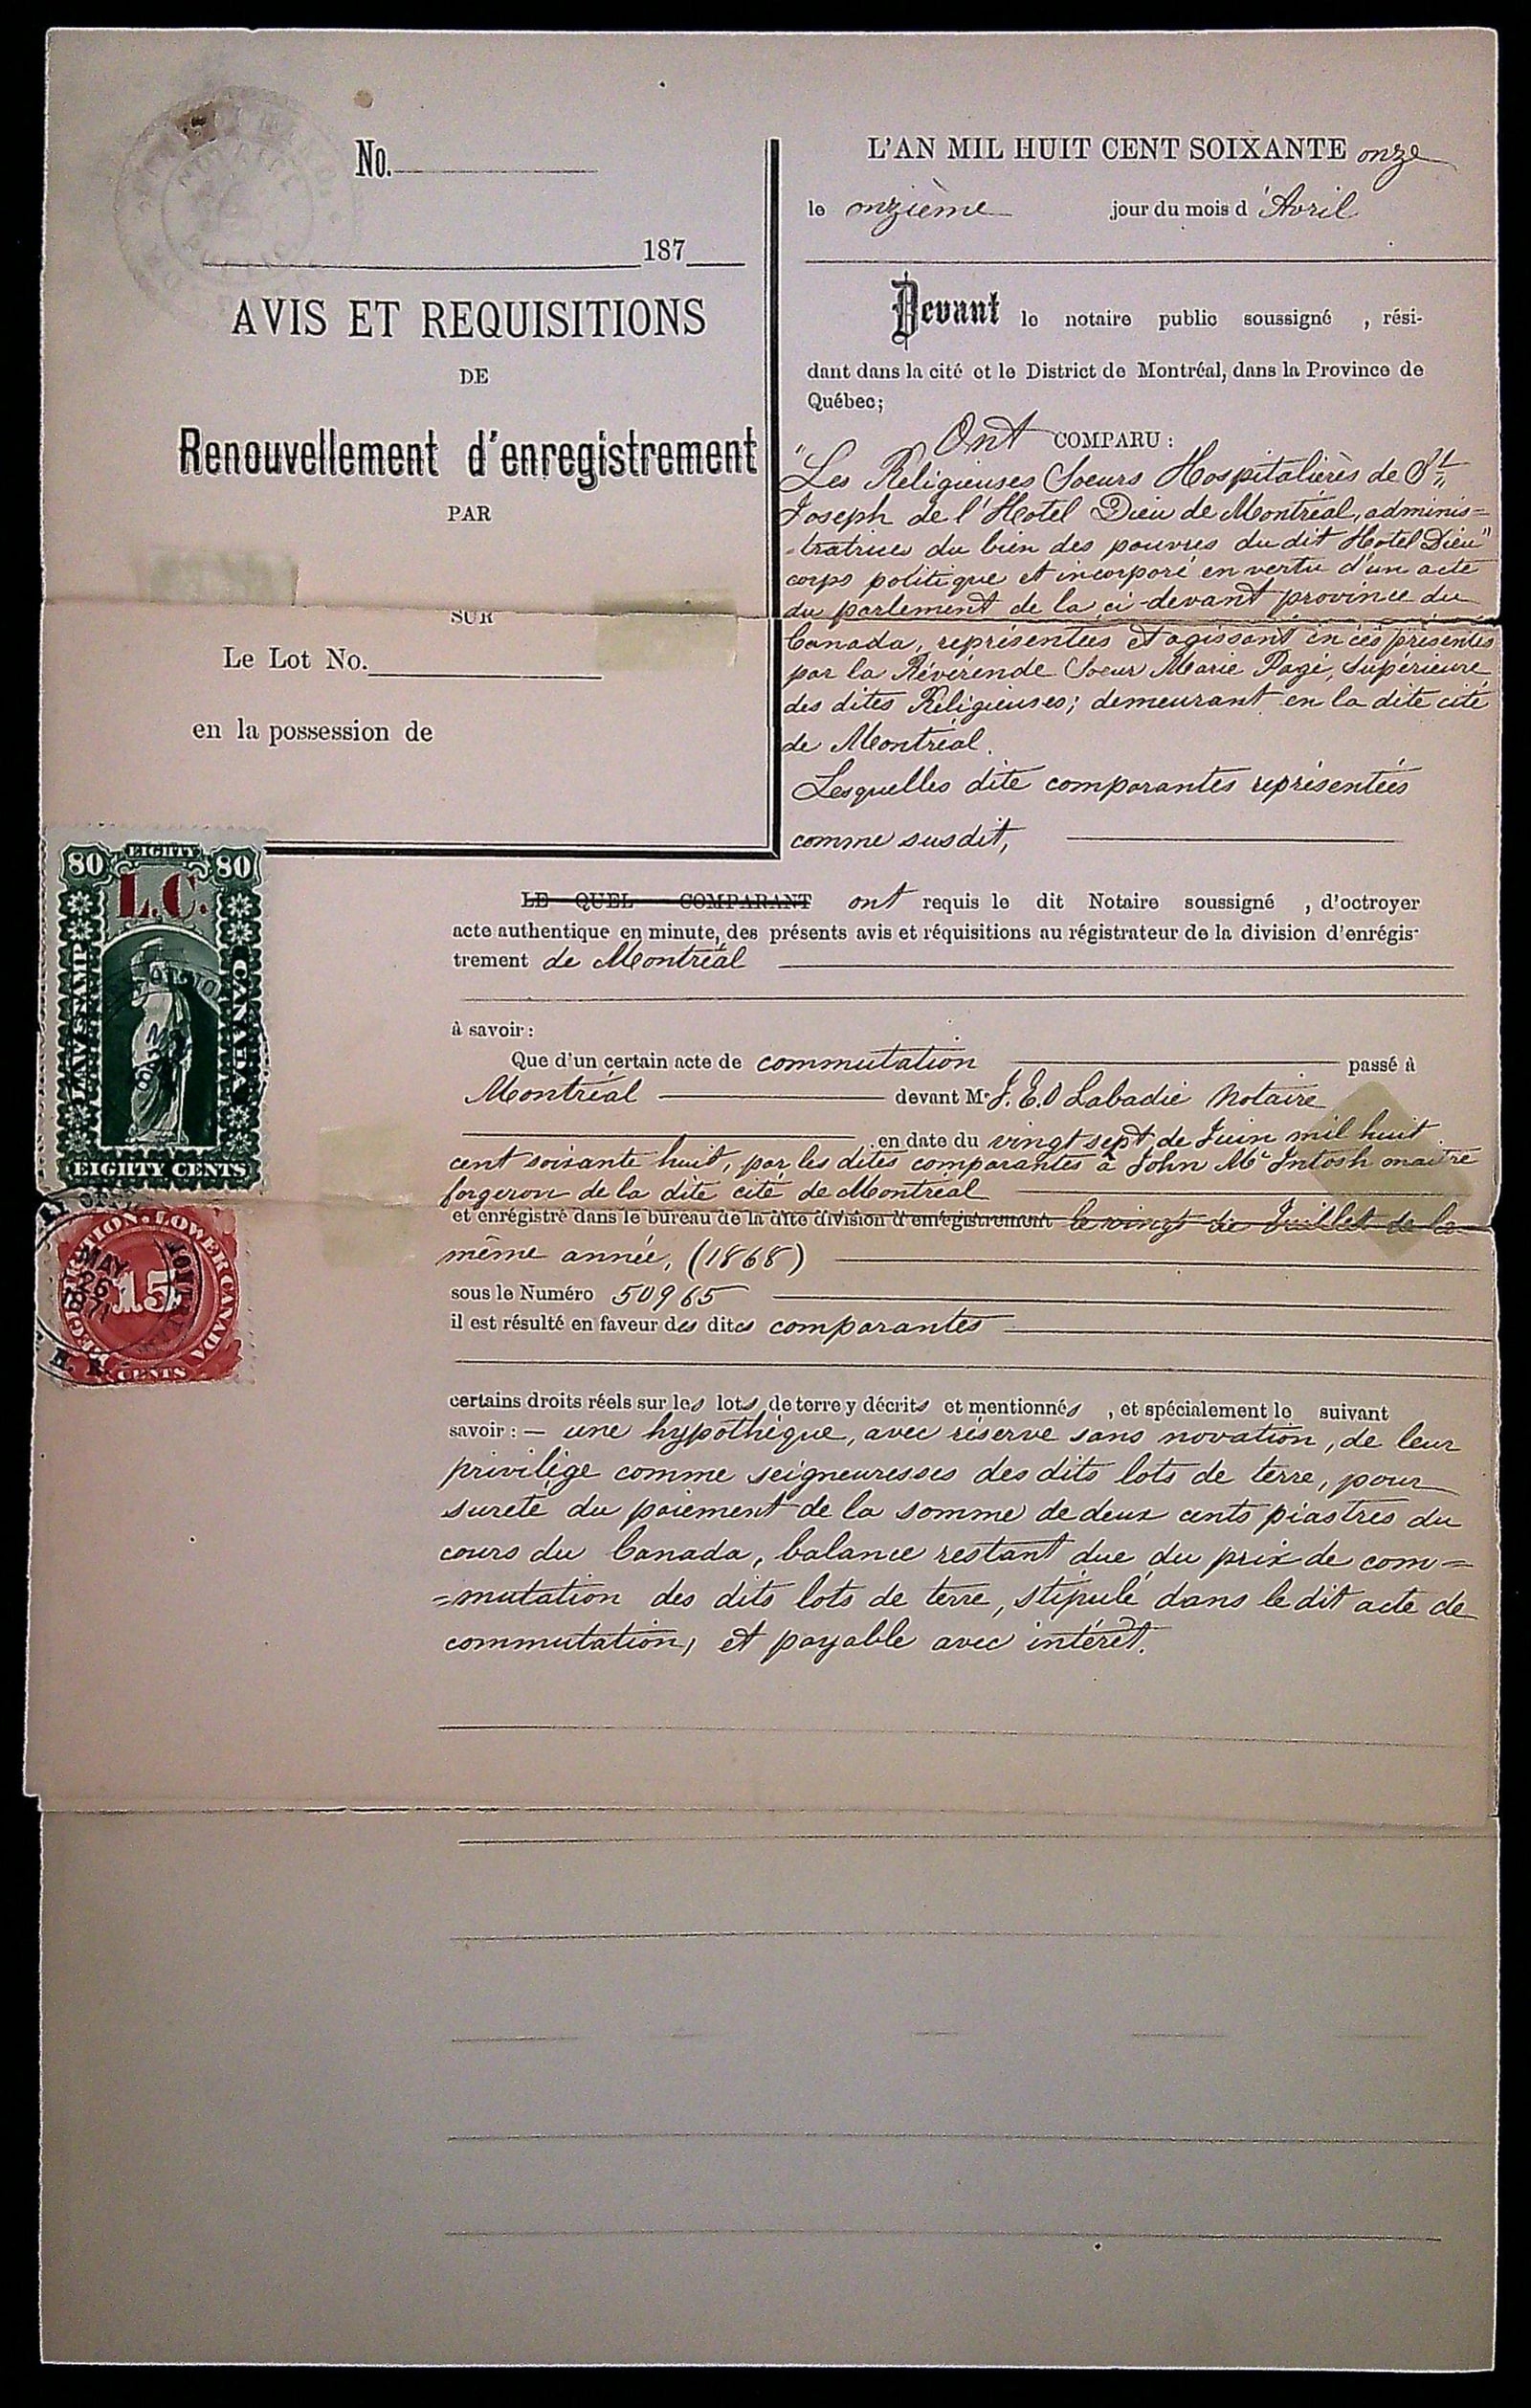 No.
187
AVIS ET REQUISITIONS
DE
Renouvellement d'enregistrement
PAR
SUR
Le Lot No.
en la possession de
L'AN MIL HUIT CENT SOIXANTE onze
le onzième jour du mois d'Avril
Devant le notaire public soussigné , rési-
dant dans la cité et le District de Montréal, dans la Province de
Québec;
Ont COMPARU :
"Les Religieuses Soeurs Hospitalières de St
Joseph de l'Hotel Dieu de Montréal, adminis=
-tratrices du bien des pauvres du dit Hotel Dieu"
corps politique et incorporé en vertu d'un acte
du parlement de la ci-devant province du
Canada, représentées et agissant en ces présentes
par la Révérende Soeur Marie Pagé, Supérieure
des dites Religieuses; demeurant en la dite cité
de Montréal.
Lesquelles dite comparantes représentées
comme susdit,
LE QUEL COMPARANT ont requis le dit Notaire soussigné , d'octroyer
acte authentique en minute, des présents avis et réquisitions au régistrateur de la division d'enrégis-
trement de Montréal
à savoir :
Que d'un certain acte de commutation passé à
Montréal devant Me J. E. O Labadie Notaire
en date du vingt sept de Juin mil huit
cent soixante huit, par les dites comparantes à John Mc Intosh maitre
forgeron de la dite cité de Montréal
et enrégistré dans le bureau de la dite division d'enregistrement le vingt de Juillet de la
même année, (1868)
sous le Numéro 50965
il est résulté en faveur des dites comparantes
certains droits réels sur les lots de terre y décrits et mentionnés , et spécialement le suivant
savoir : — une hypothèque, avec réserve sans novation, de leur
privilège comme seigneuresses des dits lots de terre, pour
sureté du paiement de la somme de deux cents piastres du
cours du Canada, balance restant due du prix de com=
=mutation des dits lots de terre, stipulé dans le dit acte de
commutation, et payable avec intérêt.
80 EIGHTY 80
L.C.
LAW STAMP
CANADA
EIGHTY CENTS
REGISTRATION. LOWER CANADA
MAY
26
71
15
CENTS